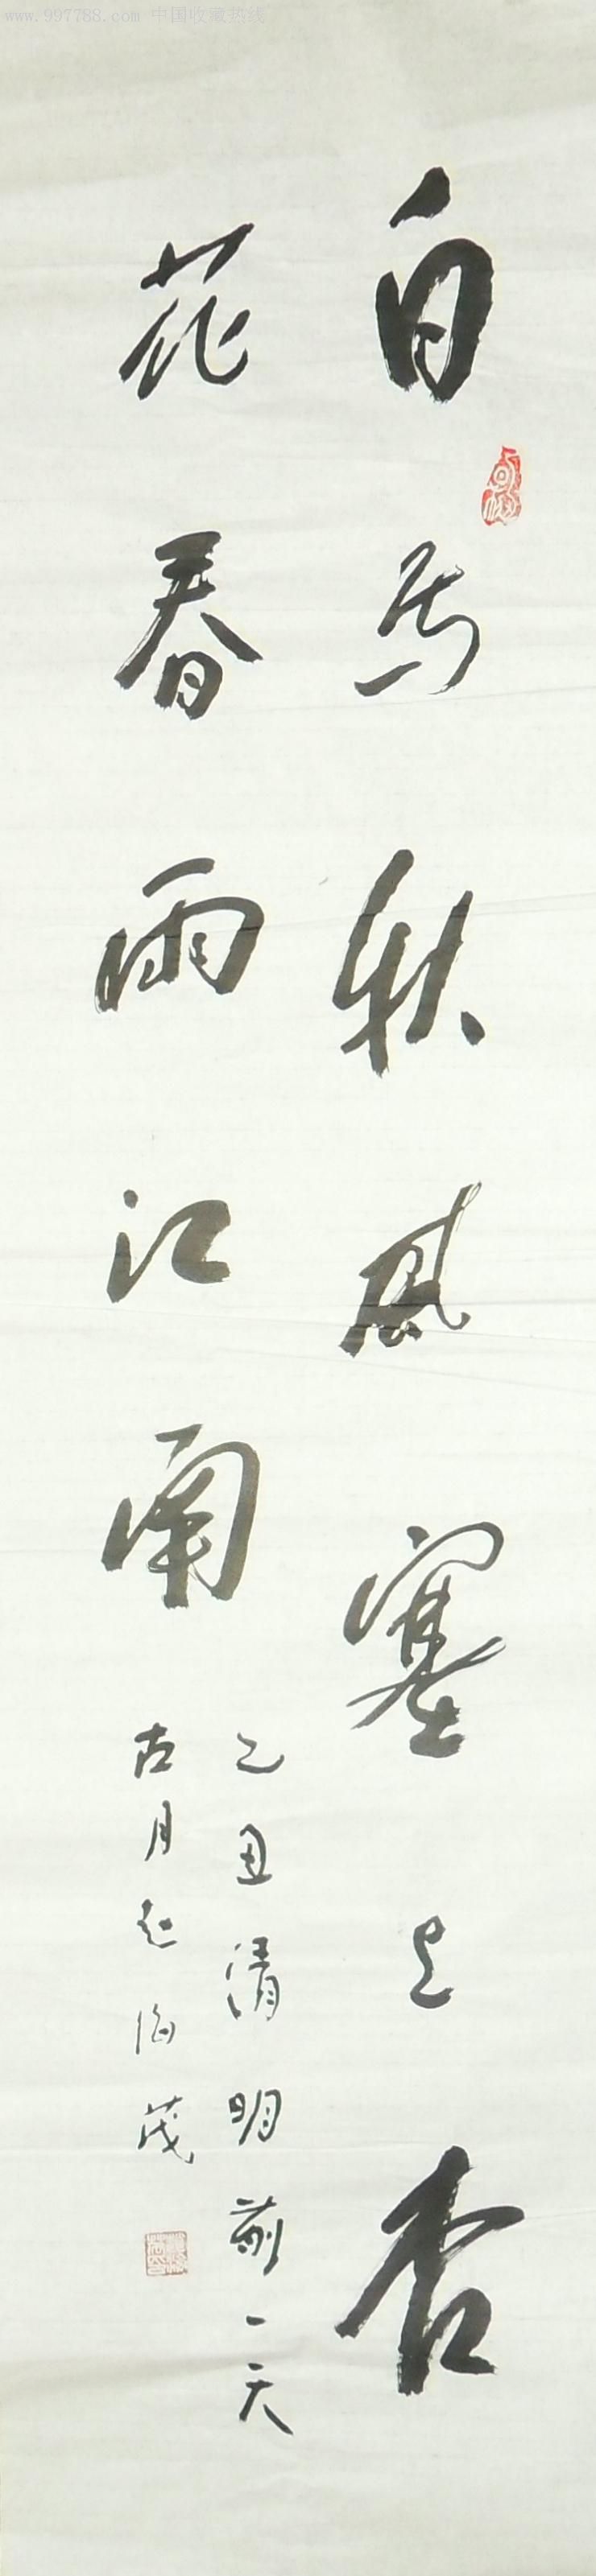 www.997788.com 中国收藏热线
白马秋风塞上杏
花春雨江南
乙丑清明前一天
古月赵海茂